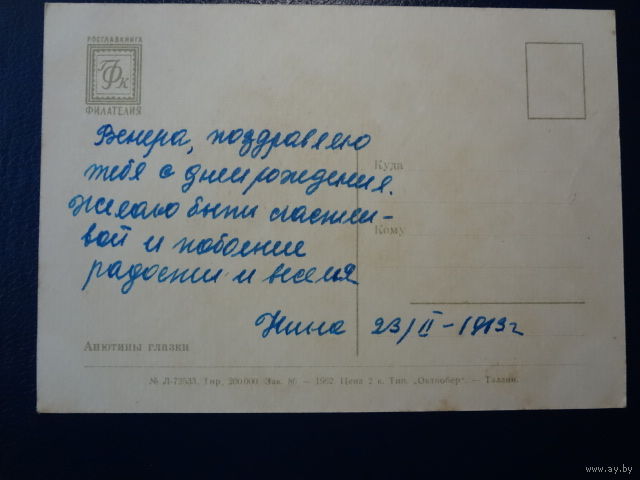 РОСГЛАВКНИГА
ГФК
ФИЛАТЕЛИЯ
Венера, поздравляю
тебя с днем рождения.
Желаю быть счастли-
вой и побольше
радости и веселья
Куда
Кому
Нина 23/II-1963г
Анютины глазки
№ Л-72533. Тир. 200.000 Зак. 86 — 1962 Цена 2 к. Тип. „Октообер“. — Таллин.
www.ay.by